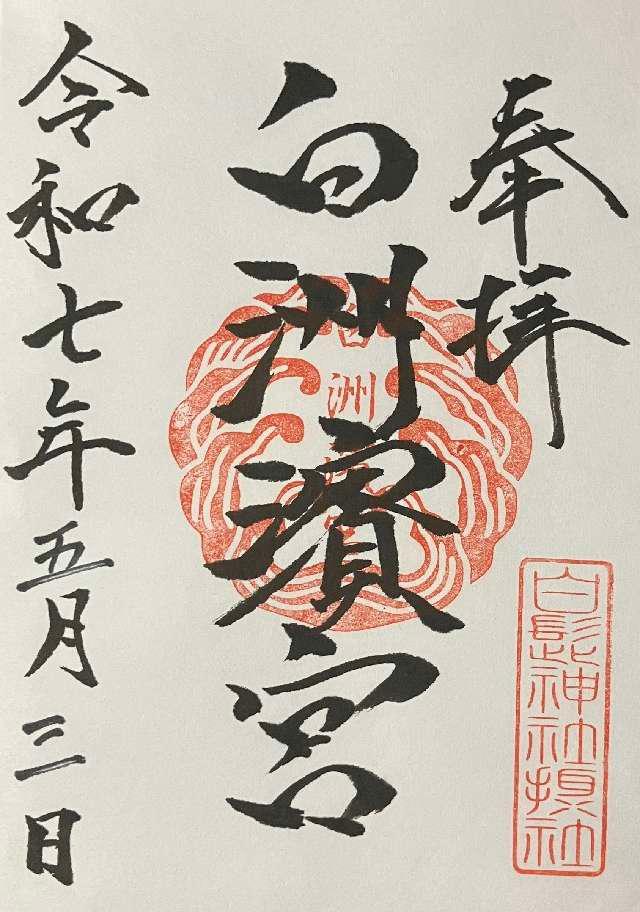 奉拝
白髭神社摂社
白洲濱宮
洲
令和七年五月三日